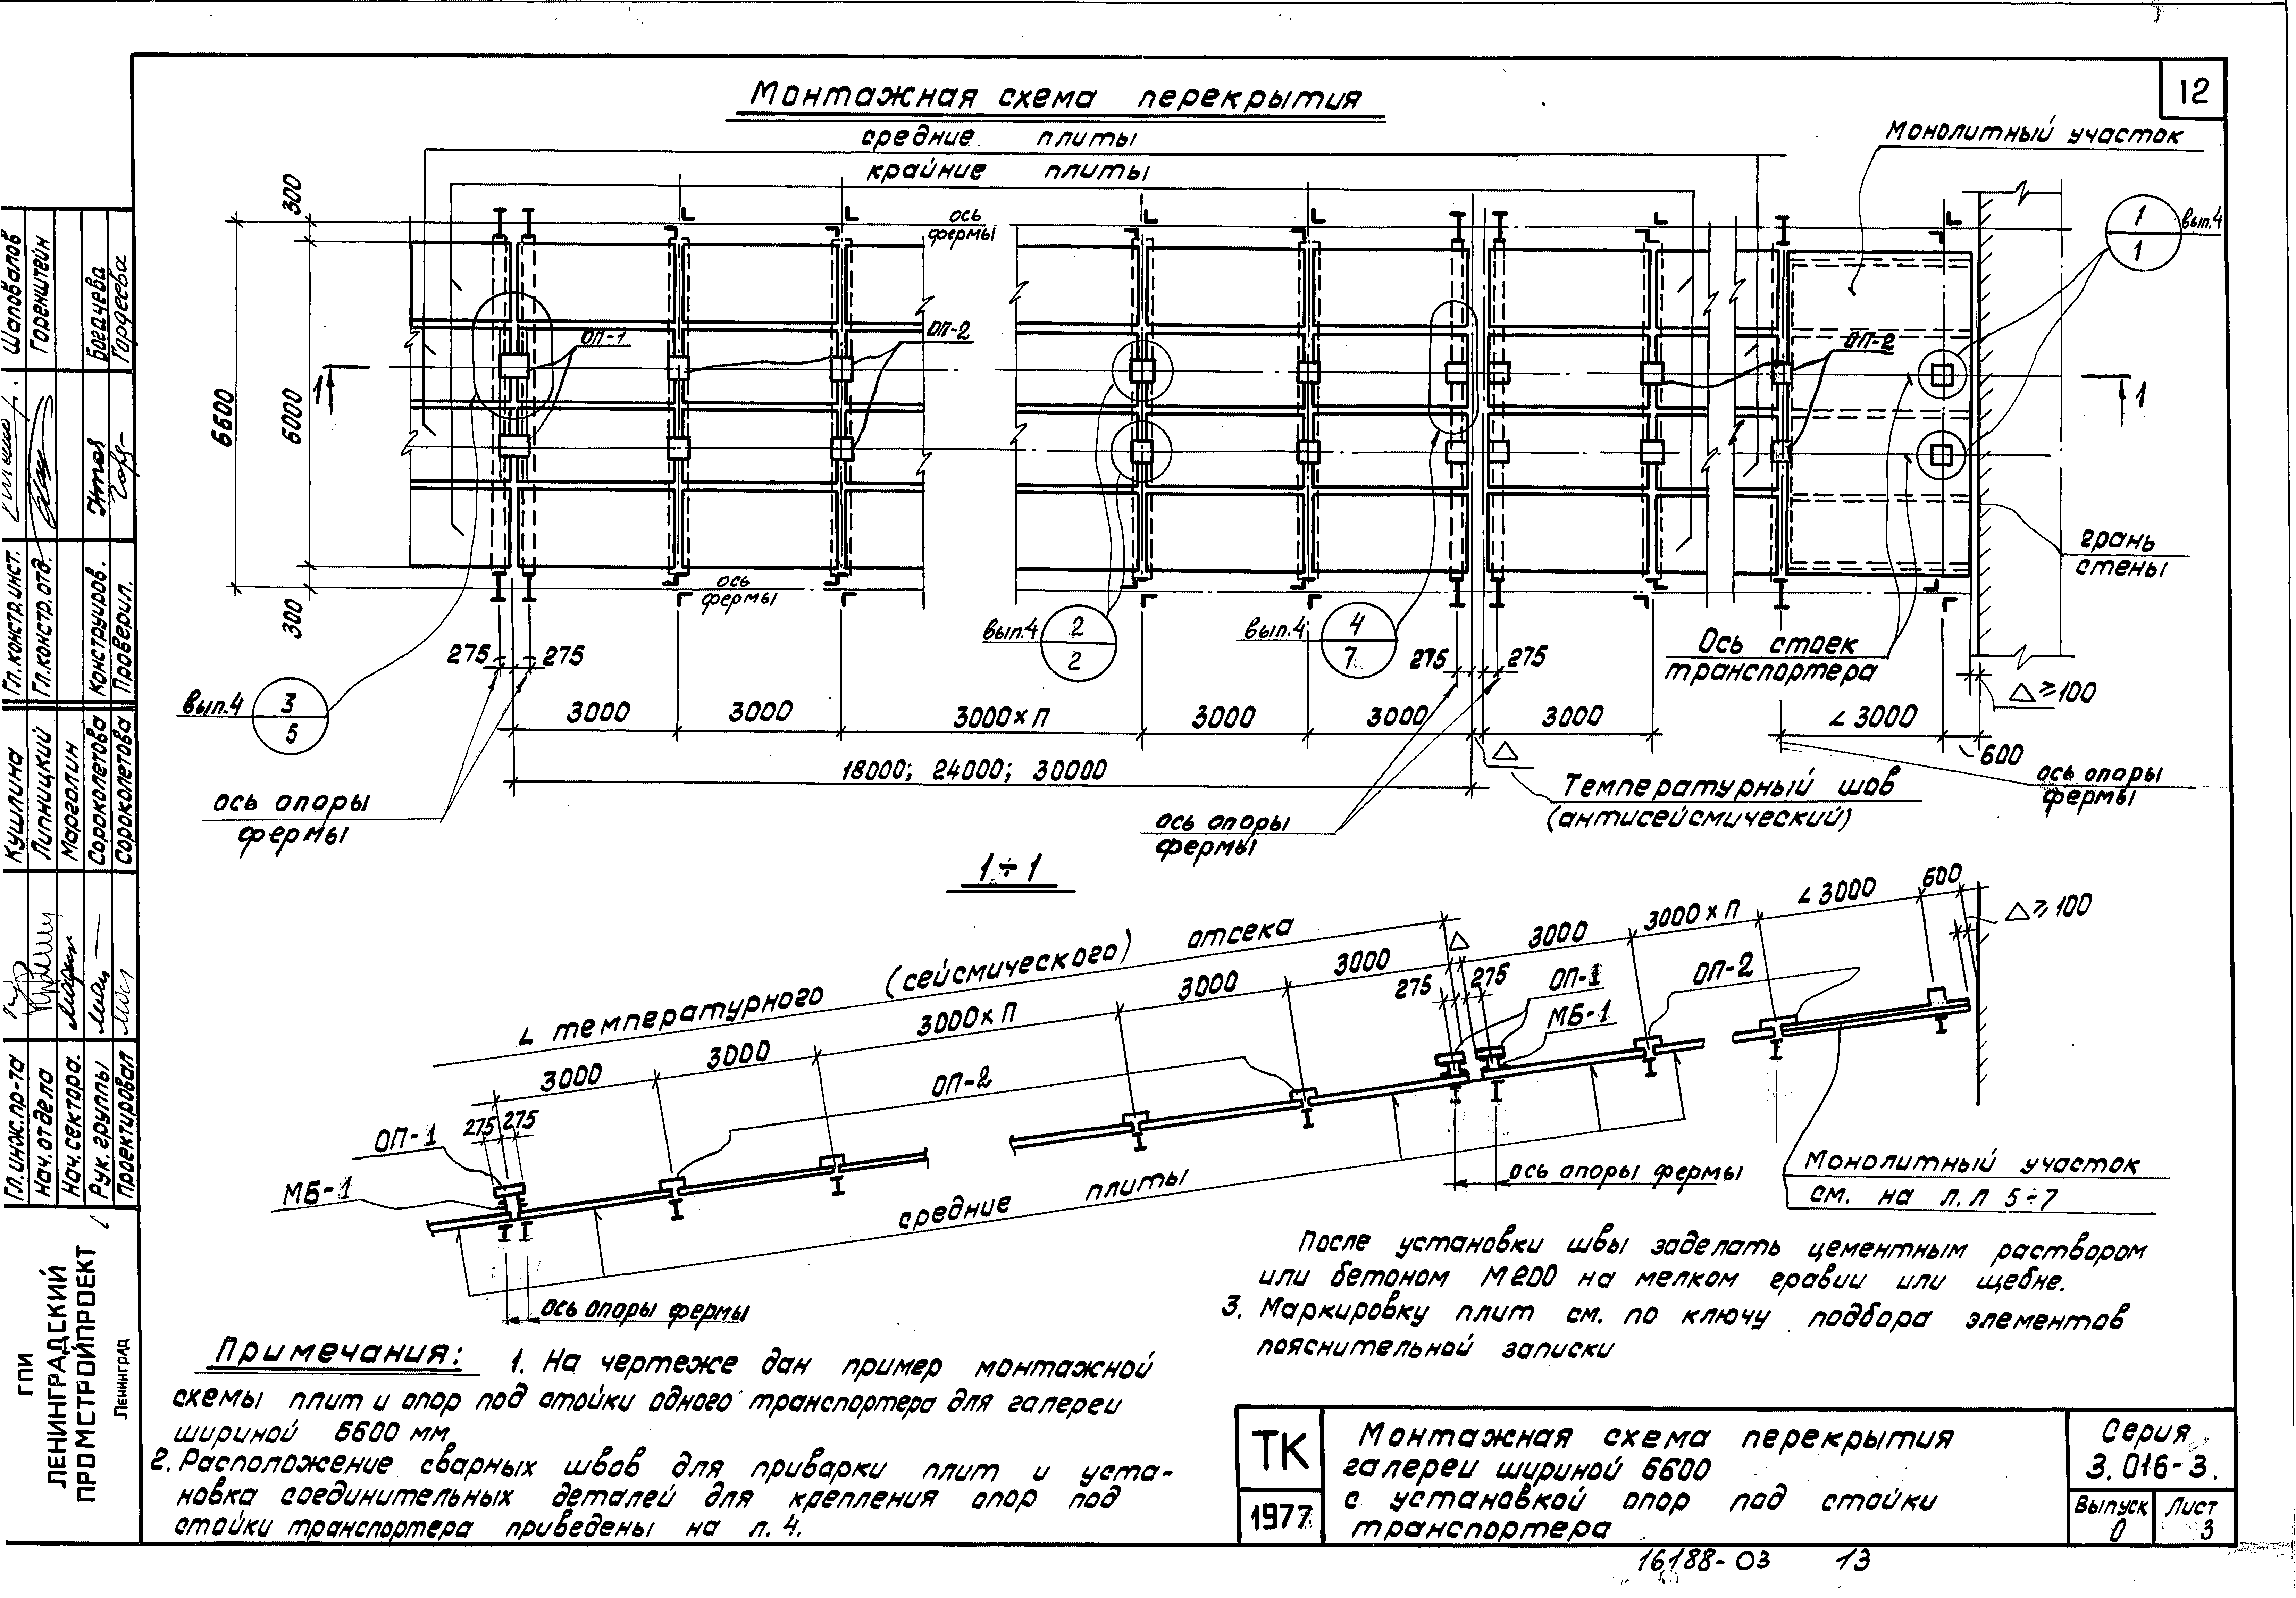 12
Монтажная схема перекрытия
средние плиты
крайние плиты
Монолитный участок
ось
фермы
300
6000
6600
300
1
1
ОП-1
ОП-2
ОП-2
1
1
вып.4
грань
стены
ось
фермы
вып.4
2
2
вып.4
4
7
Ось стоек
транспортера
275
275
275
275
Δ ≥ 100
вып.4
3
5
3000
3000
3000×П
3000
3000
3000
∠ 3000
600
Δ
18000; 24000; 30000
ось опоры
фермы
ось опоры
фермы
Температурный шов
(антисейсмический)
ось опоры
фермы
1÷1
∠ температурного (сейсмического) отсека
3000
3000
3000×П
3000
3000
Δ
3000
3000×П
∠ 3000
600
Δ ≥ 100
275
275
275
275
ОП-1
МБ-1
ОП-2
ОП-1
МБ-1
ОП-2
средние плиты
ось опоры фермы
ось опоры фермы
Монолитный участок
см. на л.л 5÷7
Примечания: 1. На чертеже дан пример монтажной
схемы плит и опор под стойки одного транспортера для галереи
шириной 6600 мм
2. Расположение сварных швов для приварки плит и уста-
новка соединительных деталей для крепления опор под
стойки транспортера приведены на л. 4.
После установки швы заделать цементным раствором
или бетоном М200 на мелком гравии или щебне.
3. Маркировку плит см. по ключу подбора элементов
пояснительной записки
ТК
1977
Монтажная схема перекрытия
галереи шириной 6600
с установкой опор под стойки
транспортера
Серия
3.016-3.
Выпуск
0
Лист
3
16188-03 13
Гл.инж.пр-та
Нач.отдела
Нач.сектора.
Рук.группы
Проектировал
Кушлина
Липницкий
Марголин
Сороколетова
Сороколетова
Гл.констр.инст.
Гл.констр.отд.
Конструиров.
Проверил.
Шаповалов
Горенштейн
Богачева
Гордеева
ГПИ
ЛЕНИНГРАДСКИЙ
ПРОМСТРОЙПРОЕКТ
Ленинград